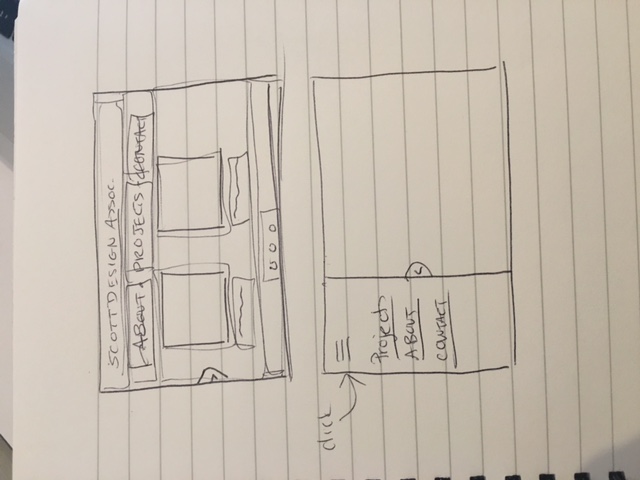 SCOTT DESIGN ASSOC.
ABOUT PROJECTS CONTACT
click
Projects
ABOUT
CONTACT